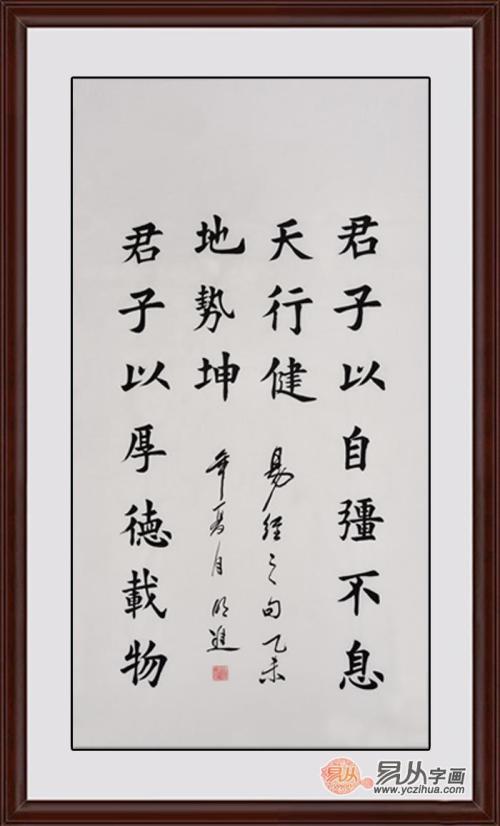 君子以自彊不息
天行健
易經之句乙未
地勢坤
年夏月明進
君子以厚德載物
易从
易从字画
www.yczihua.com